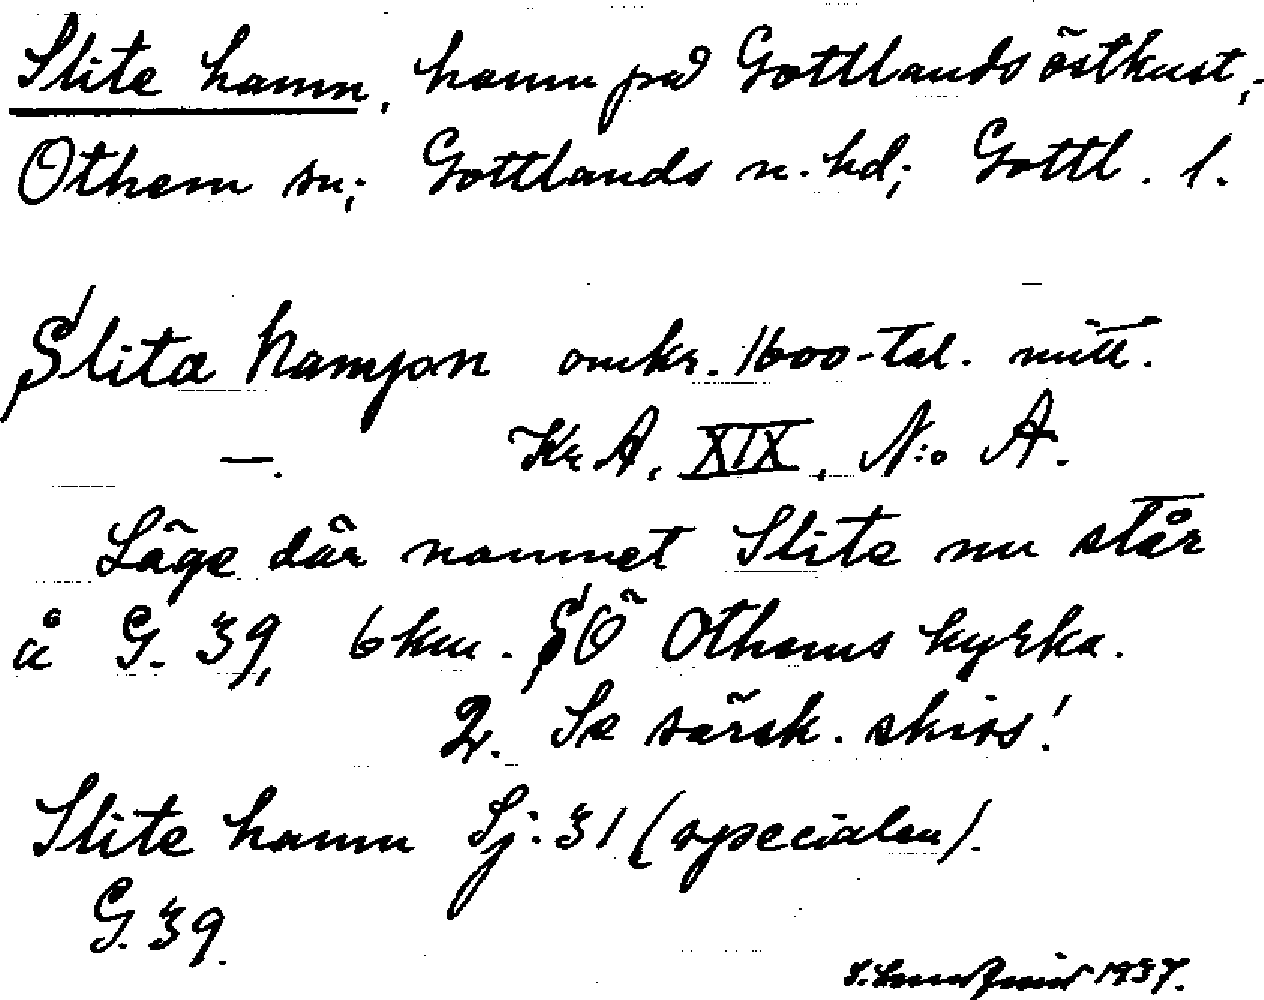 Slite hamn, hamn på Gottlands östkust;
Othem sn; Gottlands n. hd; Gottl. l.
Slita hampn omkr. 1600-tal. mitt.
—. Kr A, XIX, N:o A.
Läge där namnet Slite nu står
å G. 39, 6 km. SÖ Othems kyrka.
2. Se särsk. skiss!
Slite hamn Sj. 31 (specialen).
G. 39.
1937.